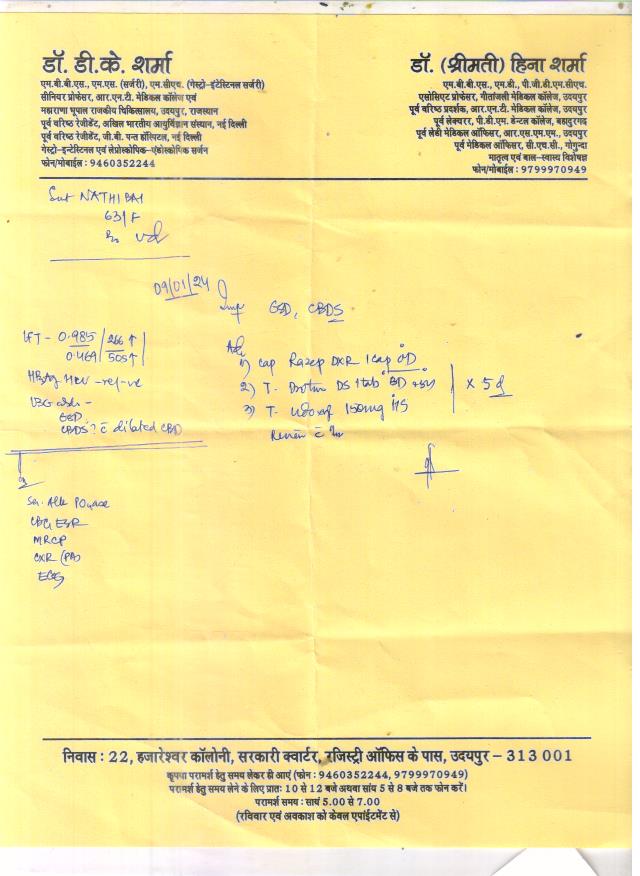 डॉ. डी.के. शर्मा
एम.बी.बी.एस., एम.एस. (सर्जरी), एम.सीएच. (गेस्ट्रो-इंटेस्टिनल सर्जरी)
सीनियर प्रोफेसर, आर.एन.टी. मेडिकल कॉलेज एवं
महाराणा भूपाल राजकीय चिकित्सालय, उदयपुर, राजस्थान
पूर्व वरिष्ठ रेजीडेंट, अखिल भारतीय आयुर्विज्ञान संस्थान, नई दिल्ली
पूर्व वरिष्ठ रेजीडेंट, जी.बी. पन्त हॉस्पिटल, नई दिल्ली
गेस्ट्रो-इन्टेस्टिनल एवं लेप्रोस्कोपिक-एंडोस्कोपिक सर्जन
फोन/मोबाईल : 9460352244
डॉ. (श्रीमती) हिना शर्मा
एम.बी.बी.एस., एम.डी., पी.जी.डी.एम.सीएच.
एसोसिएट प्रोफेसर, गीतांजली मेडिकल कॉलेज, उदयपुर
पूर्व वरिष्ठ प्रदर्शक, आर.एन.टी. मेडिकल कॉलेज, उदयपुर
पूर्व लेक्चरर, पी.डी.एम. डेन्टल कॉलेज, बहादुरगढ़
पूर्व लेडी मेडिकल ऑफिसर, आर.एस.एम.एम., उदयपुर
पूर्व मेडिकल ऑफिसर, सी.एच.सी., गोगुन्दा
मातृत्व एवं बाल-स्वास्थ्य विशेषज्ञ
फोन/मोबाईल : 9799970949
Smt NATHI BAI
63/F
09/01/24
Imp GSD, CBDS
LFT - 0.985 / 266 ↑
0.469 / 505 ↑
HBsAg HCV -ve -ve
USG
GSD
CBDS? c dilated CBD
Adv
1) Cap DXR 1 cap OD
2) T. DS 1 tab BD
3) T. 150mg HS
x 5 d
Review c
Sr. Alk
CBC, ESR
MRCP
CXR (PA)
ECG
निवास : 22, हजारेश्वर कॉलोनी, सरकारी क्वार्टर, रजिस्ट्री ऑफिस के पास, उदयपुर – 313 001
कृपया परामर्श हेतु समय लेकर ही आएं (फोन : 9460352244, 9799970949)
परामर्श हेतु समय लेने के लिए प्रातः 10 से 12 बजे अथवा सांय 5 से 8 बजे तक फोन करें।
परामर्श समय : सायं 5.00 से 7.00
(रविवार एवं अवकाश को केवल एपॉइंटमेंट से)